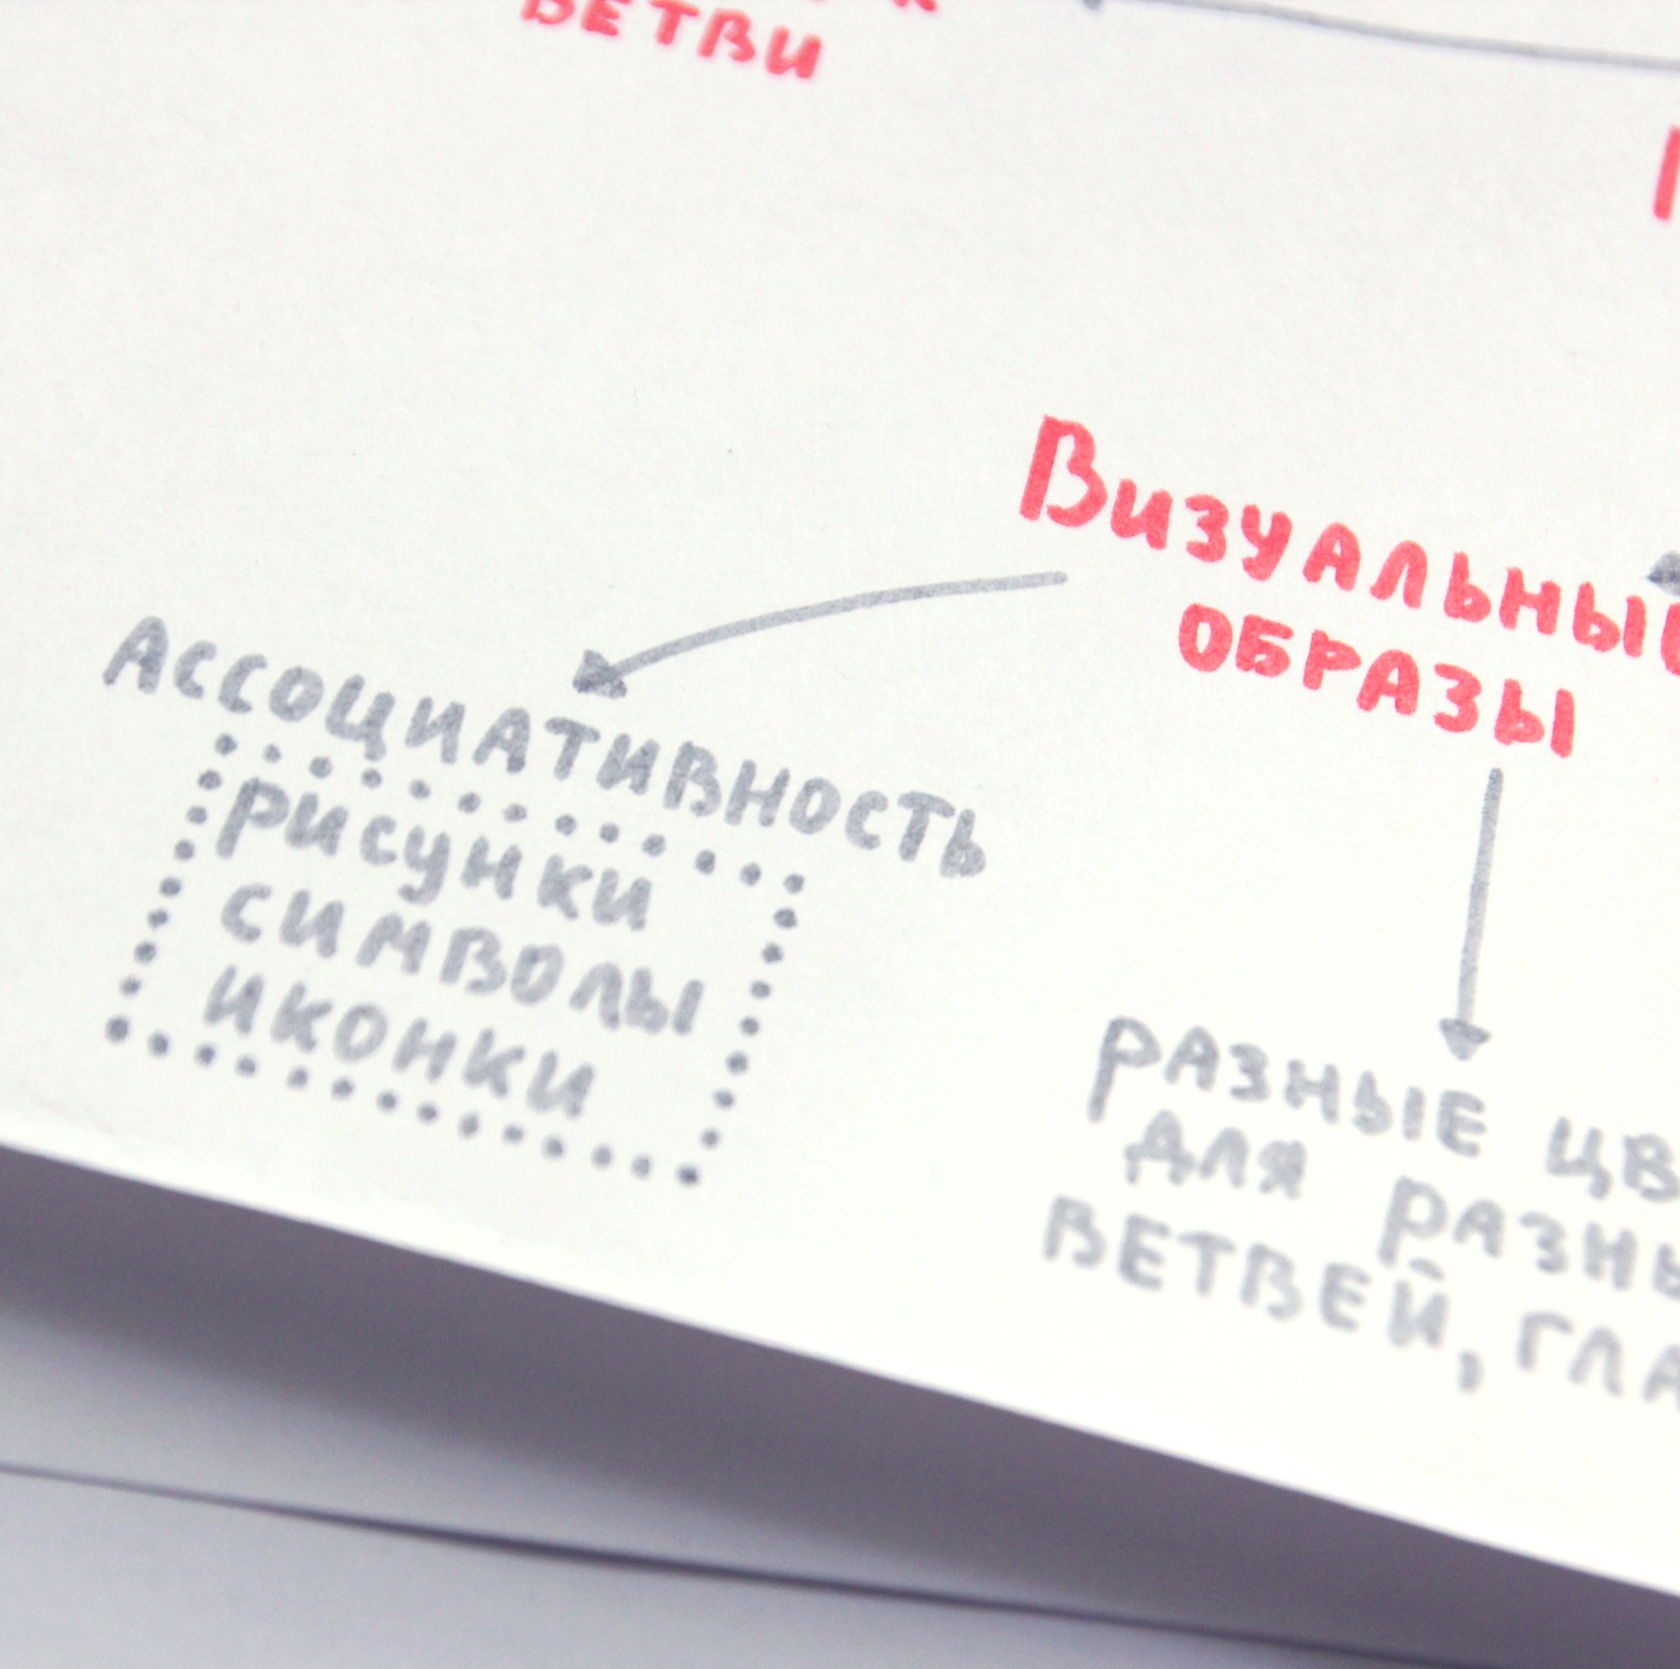 ветви
Визуальные
образы
Ассоциативность
рисунки
символы
иконки
разные цв
для разны
ветвей, гла